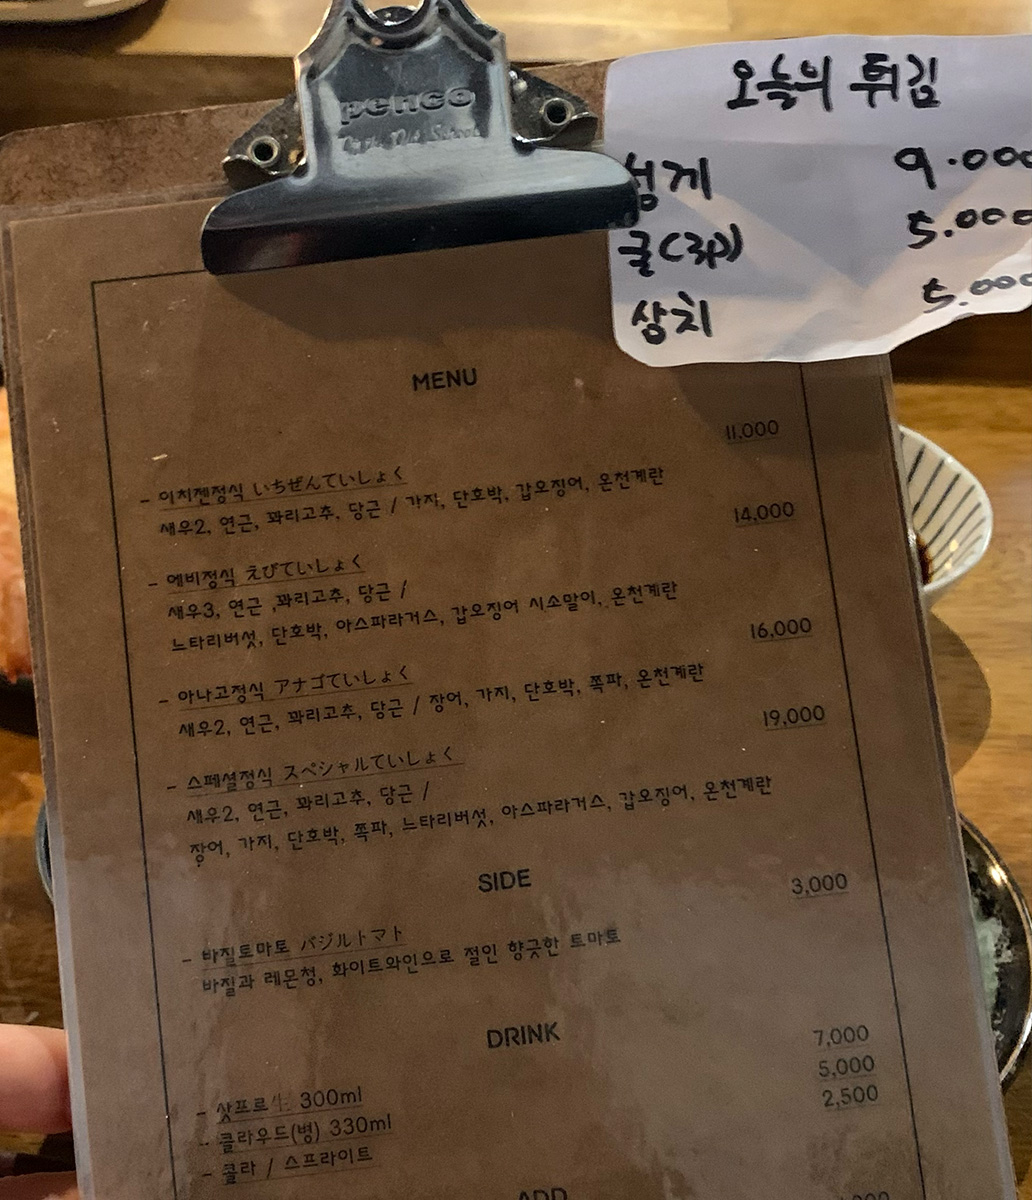 penco
오늘의 튀김
성게 9.000
굴(2P) 5.000
삼치 5.000
MENU
11,000
- 이치젠정식 いちぜんていしょく
새우2, 연근, 꽈리고추, 당근 / 가지, 단호박, 갑오징어, 온천계란
14,000
- 에비정식 えびていしょく
새우3, 연근 ,꽈리고추, 당근 /
느타리버섯, 단호박, 아스파라거스, 갑오징어 시소말이, 온천계란
16,000
- 아나고정식 アナゴていしょく
새우2, 연근, 꽈리고추, 당근 / 장어, 가지, 단호박, 쪽파, 온천계란
19,000
- 스페셜정식 スペシャルていしょく
새우2, 연근, 꽈리고추, 당근 /
장어, 가지, 단호박, 쪽파, 느타리버섯, 아스파라거스, 갑오징어, 온천계란
SIDE
3,000
- 바질토마토 バジルトマト
바질과 레몬청, 화이트와인으로 절인 향긋한 토마토
DRINK
7,000
5,000
2,500
- 삿포로生 300ml
- 클라우드(병) 330ml
- 콜라 / 스프라이트
ADD